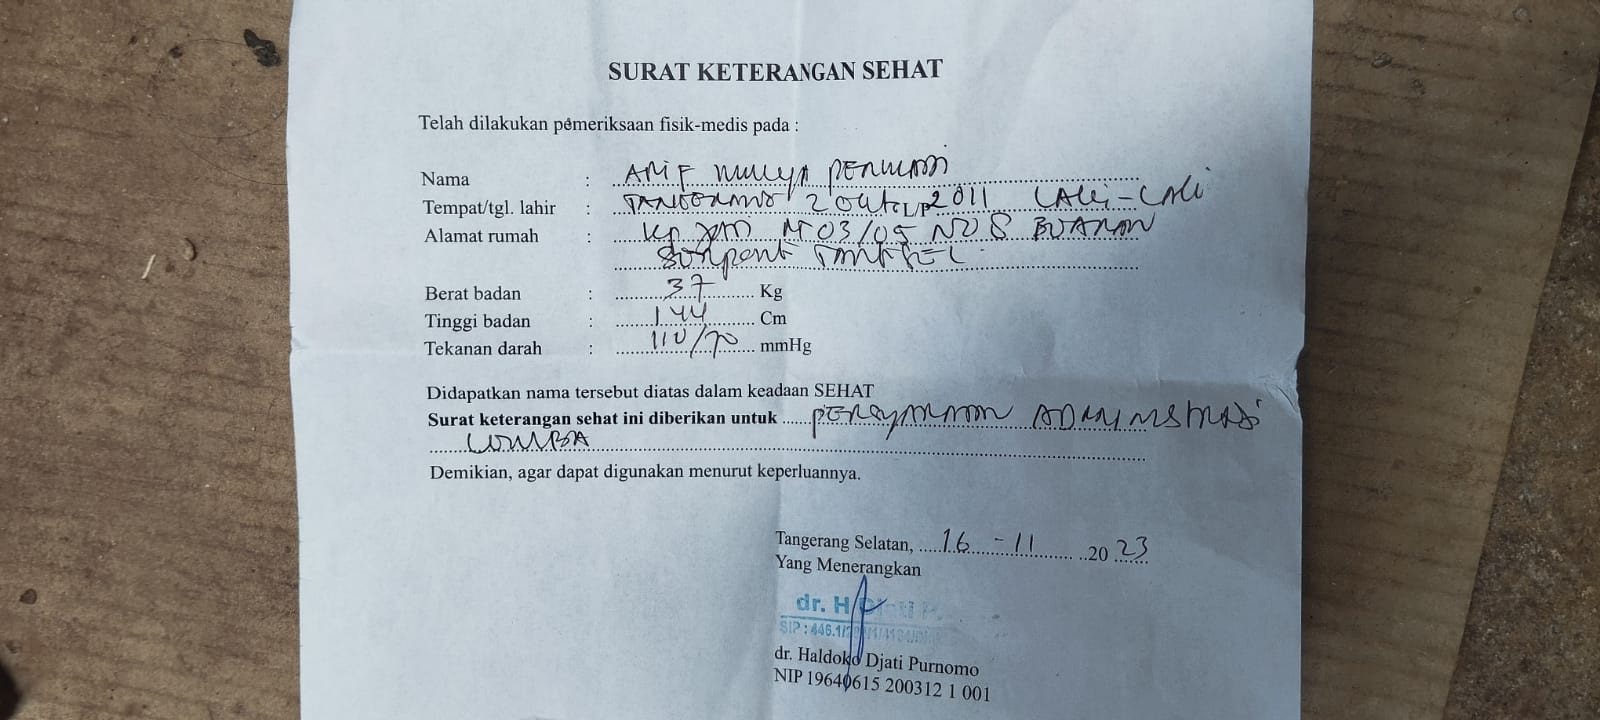 SURAT KETERANGAN SEHAT
Telah dilakukan pemeriksaan fisik-medis pada :
Nama : ARIF MULYA
Tempat/tgl. lahir : TANGERANG 2 Okt L/P 2011 LAKI-LAKI
Alamat rumah : Kp RT 03/05 NO 8 BUARAN
Serpong TANGSEL
Berat badan : 37 Kg
Tinggi badan : 144 Cm
Tekanan darah : 110/70 mmHg
Didapatkan nama tersebut diatas dalam keadaan SEHAT
Surat keterangan sehat ini diberikan untuk PERSYARATAN ADMINISTRASI
LOMBA
Demikian, agar dapat digunakan menurut keperluannya.
Tangerang Selatan, 16 - 11 20 23
Yang Menerangkan
dr. H
SIP : 446.1/
dr. Haldoko Djati Purnomo
NIP 19640615 200312 1 001